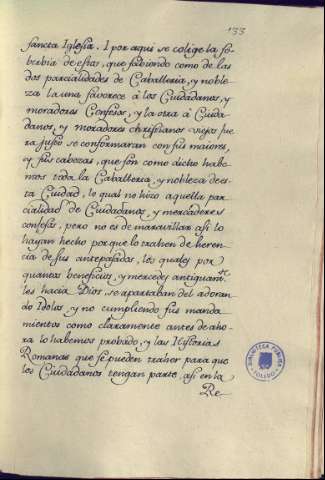 133
sancta Iglesia. I por aqui se colige la so-
berbia de estos, que sabiendo como de las
dos parcialidades de Caballeria, y noble-
za la una favorece à los Ciudadanos, y
moradores Confesos, y la otra à Ciuda-
danos, y moradores christianos viejos fue
ra justo se conformaran con sus maiores,
y sus cabezas, que son como dicho habe-
mos toda la Caballeria, y nobleza de es-
ta Ciudad, lo qual no hizo aquella par-
cialidad de Ciudadanos, y mercaderes
confesos, pero no es de maravillar asi lo
hayan hecho por que lo trahen de heren-
cia de sus antepasados, los quales por
quantos beneficios, y mercedes antiguamte.
les hacia Dios, se apartaban del adoran-
do Idolos, y no cumpliendo sus manda-
mientos como claramente antes de aho-
ra lo habemos probado, y las Historias
Romanas que se pueden traher para que
los Ciudadanos tengan parte, asi en la
Re-
BIBLIOTECA PUBLICA
TOLEDO